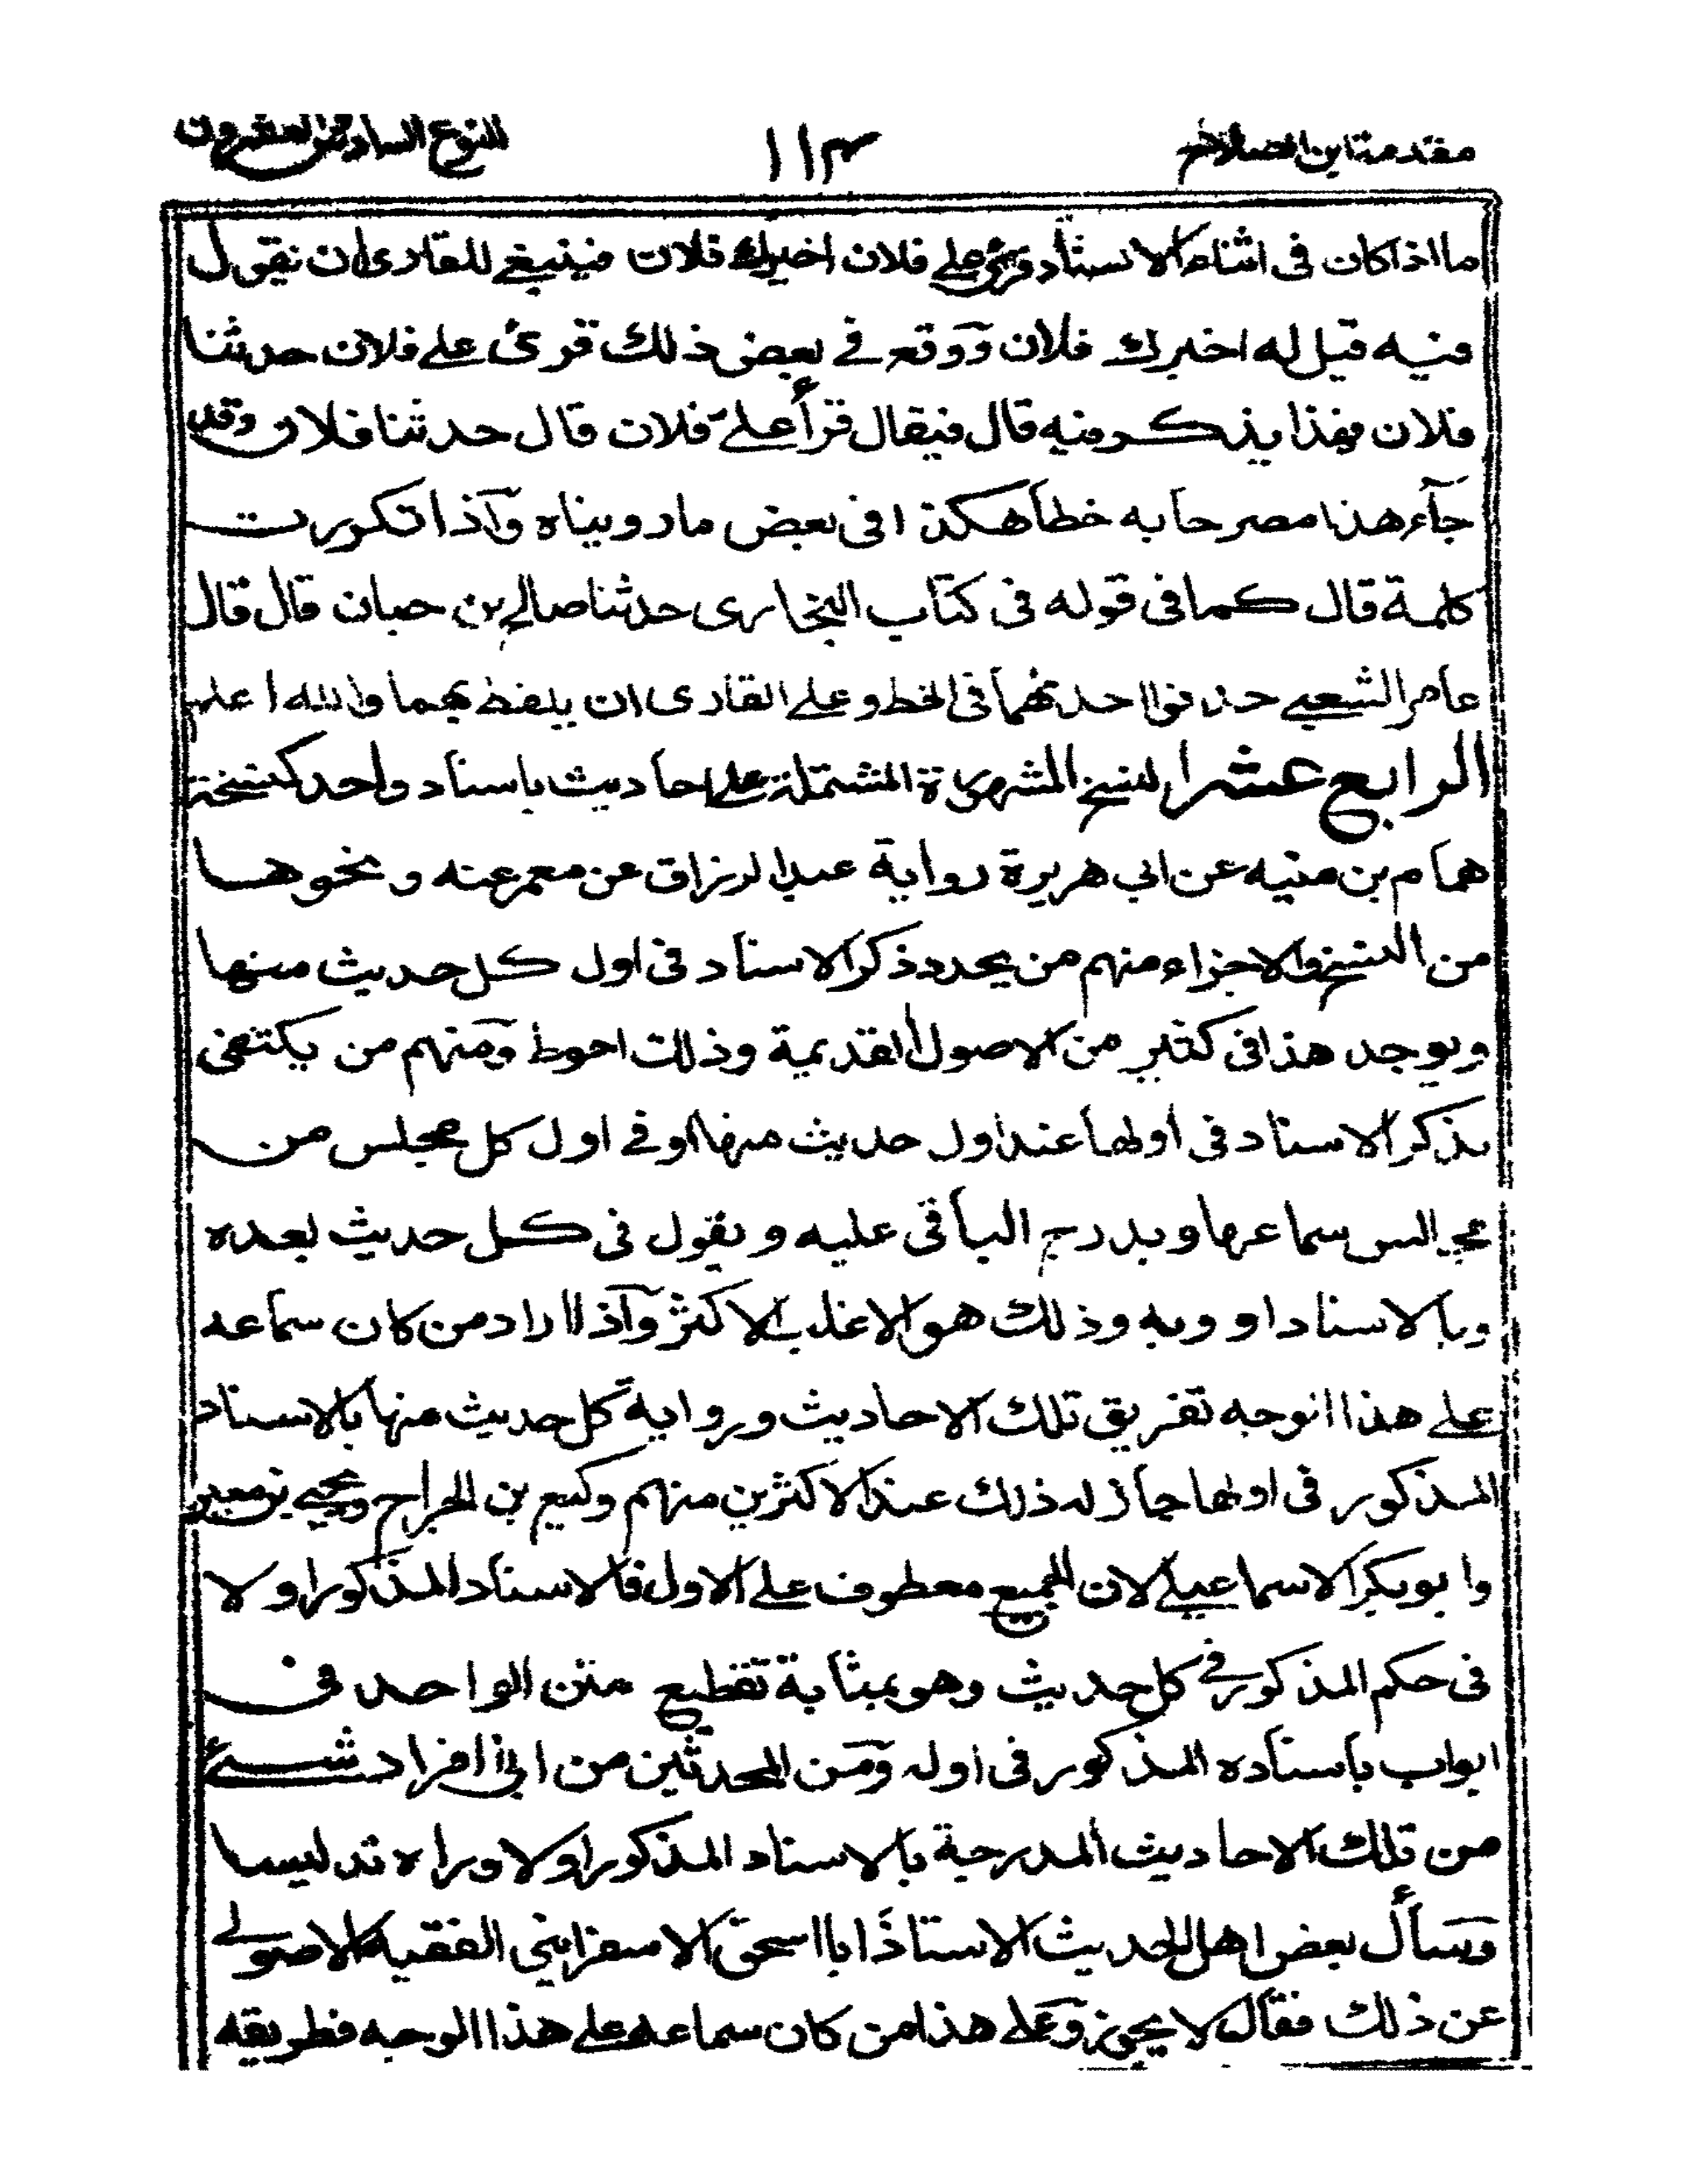 مقدمة ابن الصلاح ١١٣ النوع السادس والعشرون
ما اذا كان فى اثناء الاسناد قرئ على فلان اخبرك فلان فينبغے للقارى ان يقول
فيه قيل له اخبرك فلان ووقع فے بعض ذلك قرئ علے فلان حدثنا
فلان فهذا يذكر فيه قال فيقال قرأ علے فلان قال حدثنا فلان وقد
جآء هذا مصرحا به خطأ هكذا فى بعض ما رويناه وآذا تكررت
كلمة قال كما فى قوله فى كتاب البخارى حدثنا صالح بن حبان قال قال
عامر الشعبے حذفوا احدٰهما فى الخط وعلے القارى ان يلفظ بهما والله اعلم
الرابع عشر النسخ المشهورة المشتملة علے احاديث باسناد واحد كنسخة
همام بن منبه عن ابي هريرة رواية عبد الرزاق عن معمر عنه ونحوها
من النسخ والاجزاء منهم من يجدد ذكر الاسناد فى اول كل حديث منها
ويوجد هذا فى كثير من الاصول القديمة وذلك احوط ومنهم من يكتفى
بذكر الاسناد فى اولها عند اول حديث منها اوفے اول كل مجلس من
مجالس سماعها ويدرج الباقى عليه ويقول فى كل حديث بعده
وبالاسناد او وبه وذلك هو الاغلب الاكثر وآذا اراد من كان سماعه
علے هذا الوجه تفريق تلك الاحاديث ورواية كل حديث منها بالاسناد
المذكور فى اولها جاز له ذلك عند الاكثرين منهم وكيع بن الجراح ويحيے بن معين
وابو بكر الاسماعيلے لان الجميع معطوف علے الاول فالاسناد المذكور اولا
فى حكم المذكور فے كل حديث وهو بمثابة تقطيع متن الواحد فى
ابواب باسناده المذكور فى اوله ومن المحدثين من ابى افراد شئ
من تلك الاحاديث المدرجة بالاسناد المذكور اولا وراٰه تدليسا
وسأل بعض اهل الحديث الاستاذ ابا اسحق الاسفرايني الفقيه الاصولے
عن ذلك فقال لا يجوز وعلے هذا من كان سماعه علے هذا الوجه فطريقه